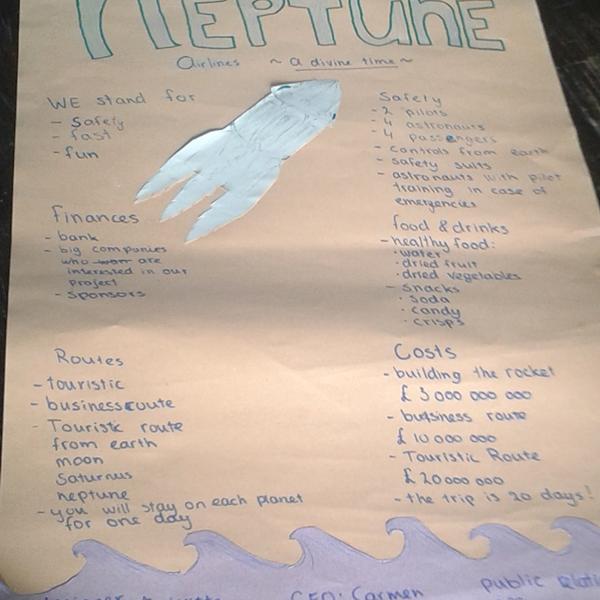 NEPTUNE
Airlines ~ a divine time ~
WE stand for
- Safety
- fast
- fun
finances
- bank
- big companies
who are
interested in our
project
- sponsors
Routes
- touristic
- businessroute
- Touristic route
from earth
moon
Saturnus
neptune
- you will stay on each planet
for one day
Safety
- 2 pilots
- 4 astronauts
- 4 passengers
- controls from earth
- safety suits
- astronauts with pilot
training in case of
emergencies
food & drinks
- healthy food:
· water
· dried fruit
· dried vegetables
- snacks
· soda
· candy
· crisps
Costs
- building the rocket
£ 3 000 000 000
- business route
£ 10 000 000
- Touristic Route
£ 20000 000
- the trip is 20 days!
CEO: Carmen
public